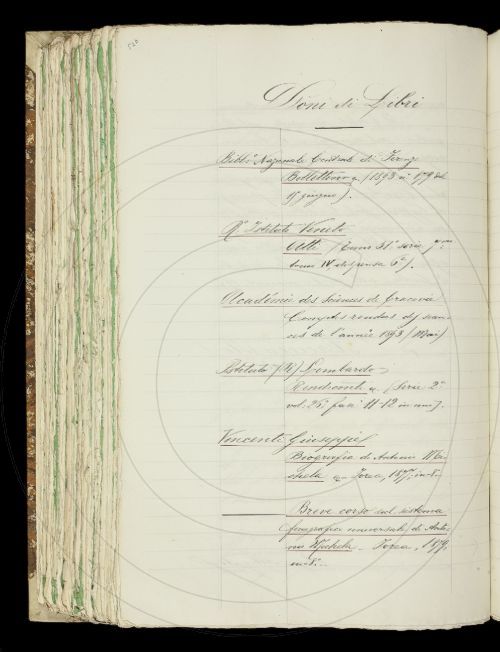 Doni di Libri
Bibl.ª Nazionale Centrale di Firenze
Bollettino &. (1893 n° 179 del
15 giugno).
R.º Istituto Veneto
Atti (Tomo 51° serie 7.ma
tomo IV dispensa 6ª).
Académie des Sciences de Cracovie
Comptes rendus des séan-
ces de l'année 1893 (Mai)
Istituto (R) Lombardo
Rendiconti &. (Serie 2ª
vol. 26° fasc. 11-12 in uno).
Vincenti Giuseppe
Biografia di Antonio Mi-
chela &- Ivrea, 1877, in-8°.
Breve corso sul sistema
fonografico universale di Anto-
nio Michela - Ivrea, 1879,
in-8°.